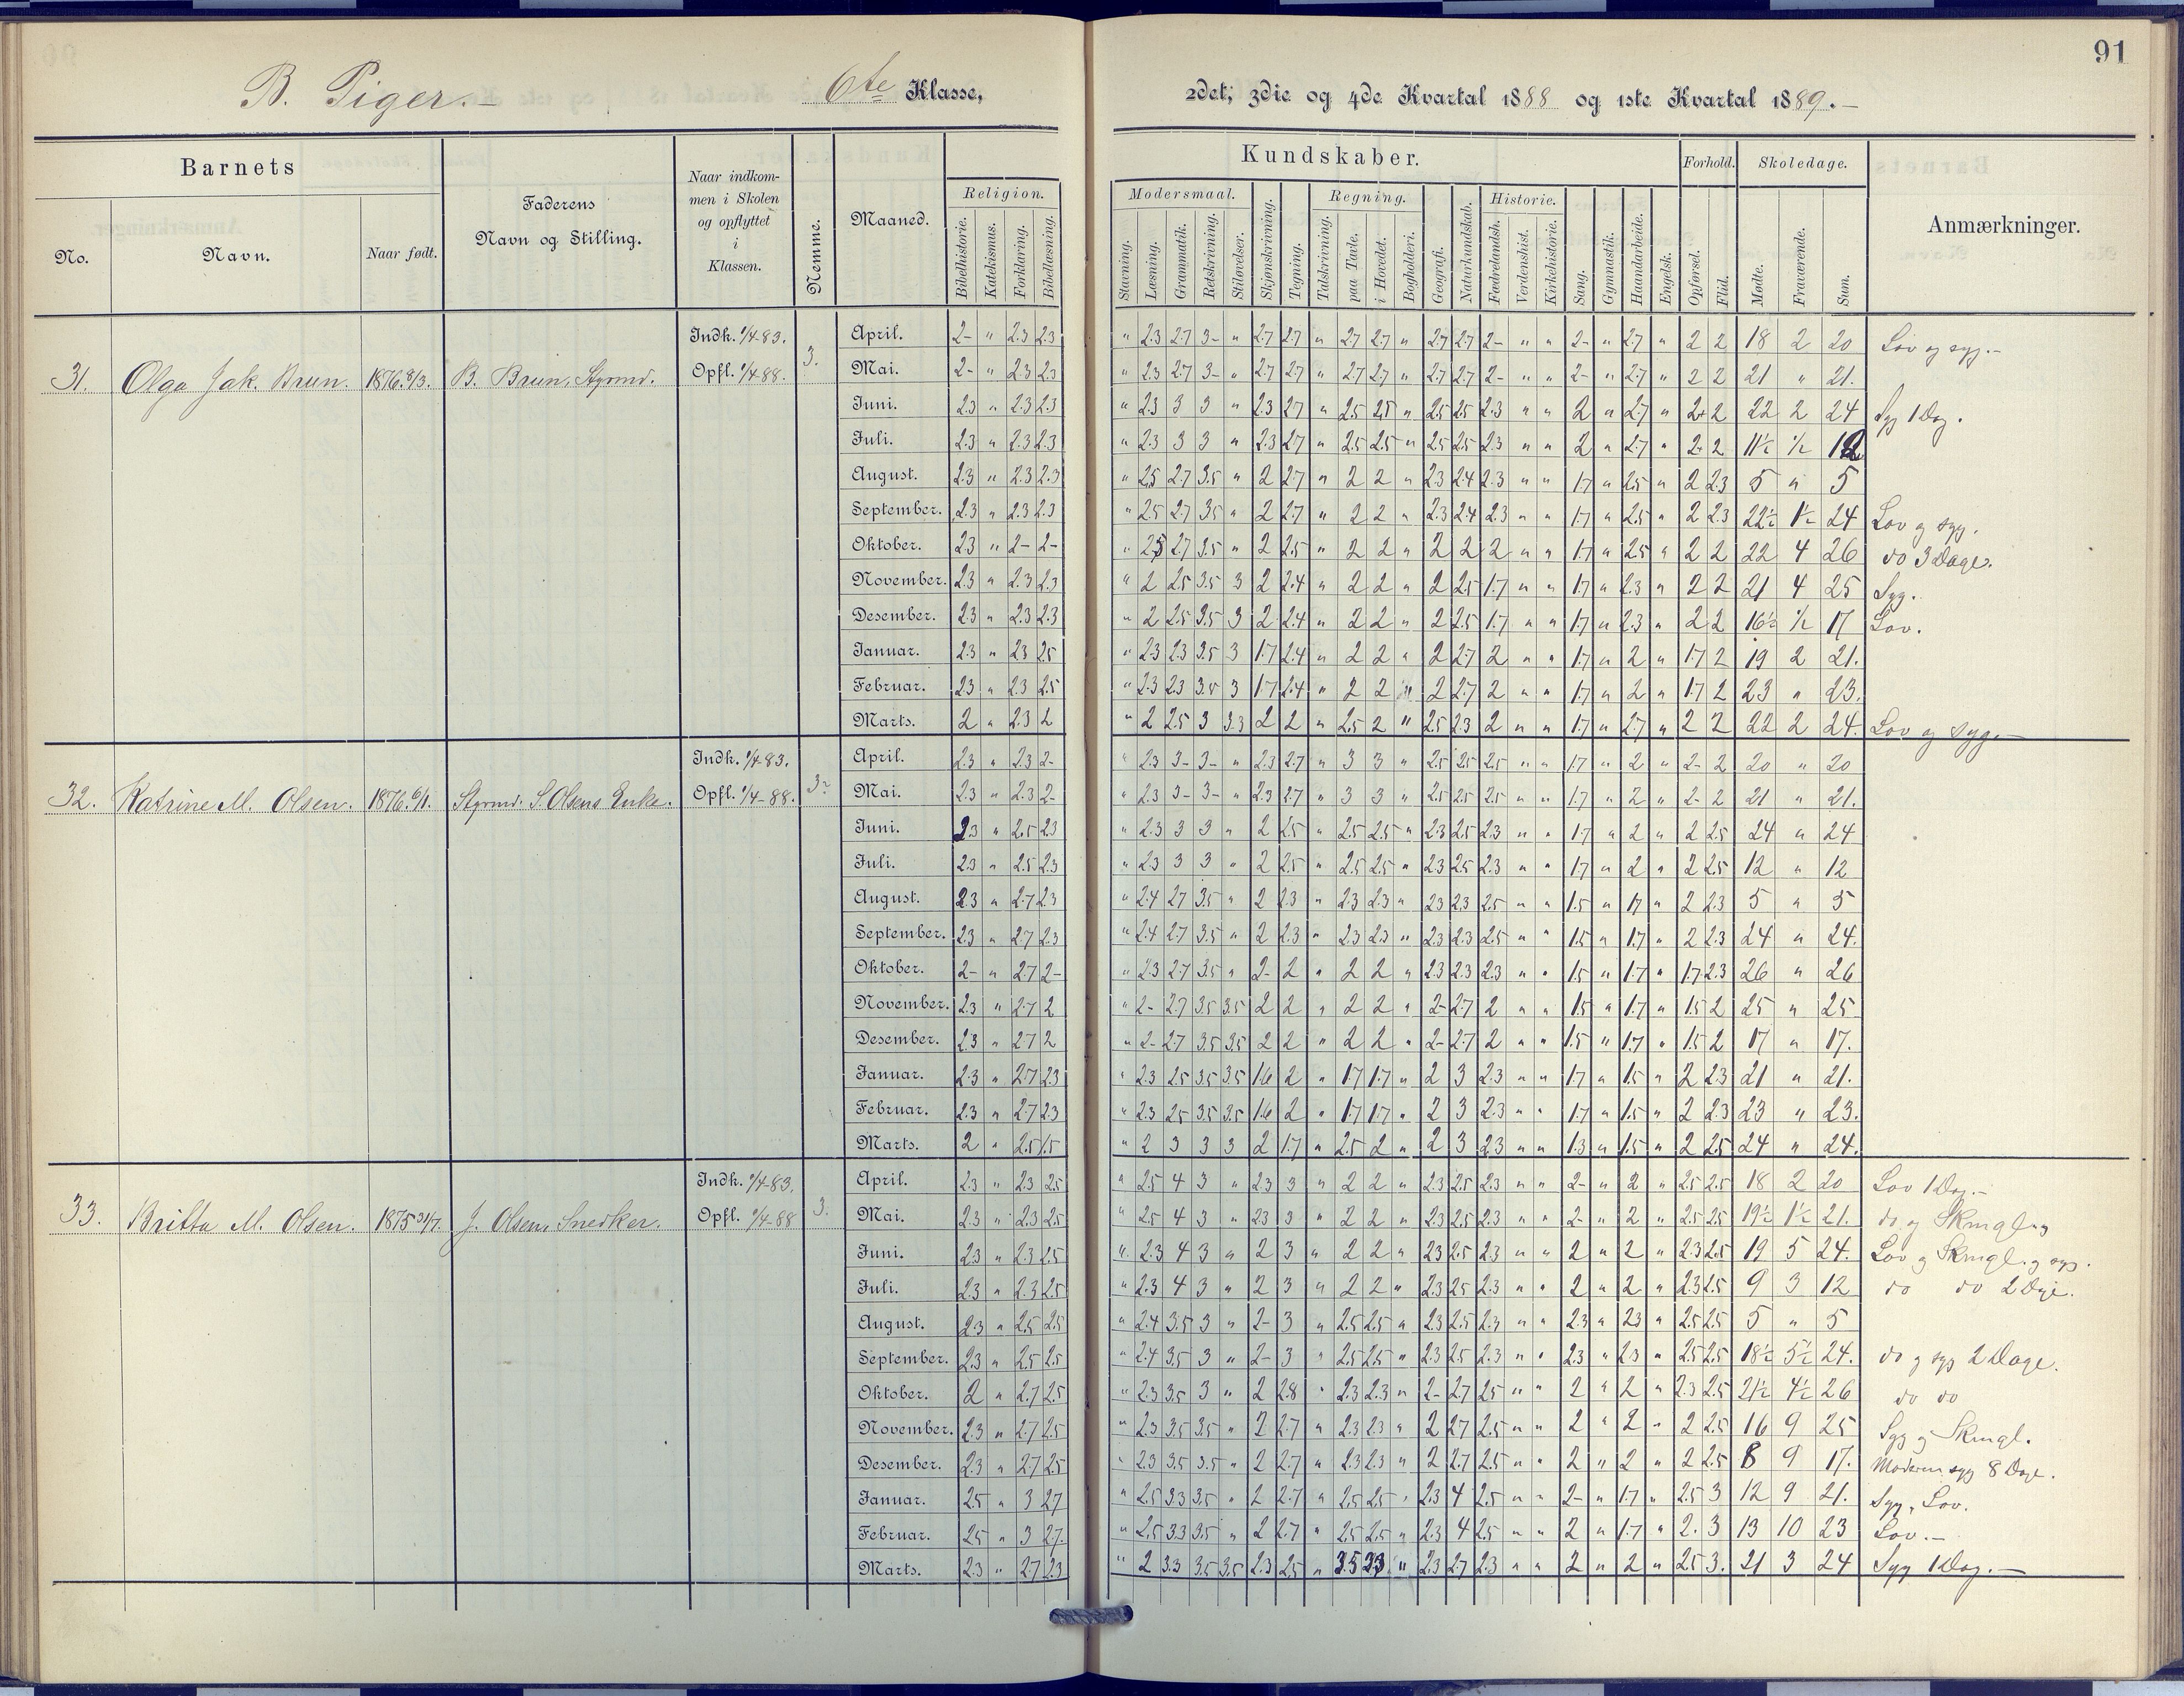 91
B. Piger. 6te Klasse, 2det, 3die og 4de Kvartal 1888 og 1ste Kvartal 1889.
Barnets
No. Navn. Naar født.
Faderens Navn og Stilling.
Naar indkommen i Skolen og opflyttet i Klassen.
Nemme.
Maaned.
Kundskaber.
Religion.
Bibelhistorie. Katekismus. Forklaring. Bibellæsning.
Modersmaal.
Stavning. Læsning. Grammatik. Retskrivning. Stiløvelser.
Skjønskrivning. Tegning.
Regning.
Talskrivning. paa Tavle. i Hovedet. Bogholderi.
Geografi. Naturkundskab.
Historie.
Fædrelandsh. Verdenshist. Kirkehistorie.
Sang. Gymnastik. Haandarbeide. Engelsk.
Forhold.
Opførsel. Flid.
Skoledage.
Mødte. Fraværende. Sum.
Anmærkninger.
31. Olga Jak. Brun. 1876 8/3. B. Brun, Styrmd. Indk. 1/4-83. Opfl. 1/4-88. 3.
April. 2- " 2.3 2.3 " 2.3 2.7 3- " 2.7 2.7 " 2.7 2.7 " 2.7 2.7 2- " " 2- " 2.7 " 2 2 18 2 20 Lov og syg.-
Mai. 2- " 2.3 2.3 " 2.3 2.7 3- " 2.7 2.7 " 2.7 2.7 " 2.7 2.7 2- " " 2- " 2.7 " 2 2 21 " 21.
Juni. 2.3 " 2.3 2.3 " 2.3 3 3 " 2.3 2.7 " 2.5 2.5 " 2.5 2.5 2.3 " " 2 " 2.7 " 2+ 2 22 2 24 Syg 1 Dag.
Juli. 2.3 " 2.3 2.3 " 2.3 3 3 " 2.3 2.7 " 2.5 2.5 " 2.5 2.5 2.3 " " 2 " 2.7 " 2 2 11½ ½ 12
August. 2.3 " 2.3 2.3 " 2.5 2.7 3.5 " 2 2.7 " 2 2 " 2.3 2.4 2.3 " " 1.7 " 2.5 " 2 2.3 5 " 5
September. 2.3 " 2.3 2.3 " 2.5 2.7 3.5 " 2 2.7 " 2 2 " 2.3 2.4 2.3 " " 1.7 " 2.5 " 2 2.3 22½ 1½ 24 Lov og syg.
Oktober. 2.3 " 2- 2- " 2.5 2.7 3.5 " 2 2.5 " 2 2 " 2 2 2 " " 1.7 " 2.5 " 2 2 22 4 26 do 3 Dage.
November. 2.3 " 2.3 2.3 " 2 2.5 3.5 3 2 2.4 " 2 2 " 2 2.5 1.7 " " 1.7 " 2.3 " 2 2 21 4 25 Syg.
Desember. 2.3 " 2.3 2.3 " 2 2.5 3.5 3 2 2.4 " 2 2 " 2 2.5 1.7 " " 1.7 " 2.3 " 2 2 16½ ½ 17 Lov.
Januar. 2.3 " 2.3 2.5 " 2.3 2.3 3.5 3 1.7 2.4 " 2 2 " 2 2.7 2 " " 1.7 " 2 " 1.7 2 19 2 21.
Februar. 2.3 " 2.3 2.5 " 2.3 2.3 3.5 3 1.7 2.4 " 2 2 " 2 2.7 2 " " 1.7 " 2 " 1.7 2 23 " 23.
Marts. 2 " 2.3 2 " 2 2.5 3 3.3 2 2 " 2.5 2 " 2.5 2.3 2 " " 1.7 " 2.7 " 2 2 22 2 24. Lov og syg.-
32. Katrine M. Olsen. 1876. 6/1. Styrmd. S. Olsens Enke. Indk. 1/4-83. Opfl. 1/4-88. 3-
April. 2.3 " 2.3 2- " 2.3 3- 3- " 2.3 2.7 " 3 3 " 2.5 2.5 2.5 " " 1.7 " 2 " 2- 2 20 " 20
Mai. 2.3 " 2.3 2- " 2.3 3- 3- " 2.3 2.7 " 3 3 " 2.5 2.5 2.5 " " 1.7 " 2 " 2- 2 21 " 21.
Juni. 2.3 " 2.5 2.3 " 2.3 3 3 " 2 2.5 " 2.5 2.5 " 2.3 2.5 2.3 " " 1.7 " 2 " 2 2.5 24 " 24
Juli. 2.3 " 2.5 2.3 " 2.3 3 3 " 2 2.5 " 2.5 2.5 " 2.3 2.5 2.3 " " 1.7 " 2 " 2 2.5 12 " 12
August. 2.3 " 2.7 2.3 " 2.4 2.7 3.5 " 2 2.3 " 2.3 2.3 " 2.3 2.3 2.5 " " 1.5 " 1.7 " 2 2.3 5 " 5
September. 2.3 " 2.7 2.3 " 2.4 2.7 3.5 " 2 2.3 " 2.3 2.3 " 2.3 2.3 2.5 " " 1.5 " 1.7 " 2 2.3 24 " 24.
Oktober. 2- " 2.7 2- " 2.3 2.7 3.5 " 2- 2 " 2 2 " 2.3 2.3 2.3 " " 1.5 " 1.7 " 1.7 2.3 26 " 26
November. 2.3 " 2.7 2 " 2- 2.7 3.5 3.5 2 2 " 2 2 " 2- 2.7 2 " " 1.5 " 1.7 " 1.5 2 25 " 25
Desember. 2.3 " 2.7 2 " 2- 2.7 3.5 3.5 2 2 " 2 2 " 2- 2.7 2 " " 1.5 " 1.7 " 1.5 2 17 " 17.
Januar. 2.3 " 2.7 2.3 " 2.3 2.5 3.5 3.5 1.6 2 " 1.7 1.7 " 2 3 2.3 " " 1.7 " 1.5 " 2 2.3 21 " 21.
Februar. 2.3 " 2.7 2.3 " 2.3 2.5 3.5 3.5 1.6 2 " 1.7 1.7 " 2 3 2.3 " " 1.7 " 1.5 " 2 2.3 23 " 23.
Marts. 2 " 2.5 1.5 " 2 3 3 3 2 1.7 " 2.5 2 " 2 3 2.3 " " 1.3 " 1.5 " 2 2.5 24 " 24.
33. Britta M. Olsen. 1875 J. Olsen, Snedker. Indk. 1/4-83. Opfl. 1/4-88 3.
April. 2.3 " 2.3 2.5 " 2.5 4 3 " 2.3 3 " 2 2 " 2.3 2.5 2.3 " " 2- " 2 " 2.5 2.5 18 2 20 Lov 1 Dag.-
Mai. 2.3 " 2.3 2.5 " 2.5 4 3 " 2.3 3 " 2 2 " 2.3 2.5 2.3 " " 2- " 2 " 2.5 2.5 19½ 1½ 21. do og Skmgl.
Juni. 2.3 " 2.3 2.5 " 2.3 4 3 " 2 3 " 2 2 " 2.3 2.5 2.3 " " 2 " 2 " 2.3 2.5 19 5 24. Lov og Skmgl. og syg.
Juli. 2.3 " 2.3 2.5 " 2.3 4 3 " 2 3 " 2 2 " 2.3 2.5 2.3 " " 2 " 2 " 2.3 2.5 9 3 12 do do 2 Dge.
August. 2.3 " 2.5 2.5 " 2.4 3.5 3 " 2- 3 " 2.5 2.5 " 2.3 2.5 2.3 " " 2.3 " 2.3 " 2.5 2.5 5 " 5
September. 2.3 " 2.5 2.5 " 2.4 3.5 3 " 2- 3 " 2.5 2.5 " 2.3 2.5 2.3 " " 2.3 " 2.3 " 2.5 2.5 18½ 5½ 24. do og syg 2 Dage.
Oktober. 2 " 2.7 2.5 " 2.3 3.5 3 " 2 2.8 " 2.3 2.3 " 2- 2.7 2.5 " " 2 " 2 " 2.3 2.5 21½ 4½ 26 do do
November. 2.3 " 2.7 2.5 " 2.3 3.5 3.5 " 2 2.7 " 2.3 2.3 " 2 2.7 2.5 " " 2 " 2 " 2 2.5 16 9 25 Syg og Skmgl.
Desember. 2.3 " 2.7 2.5 " 2.3 3.5 3.5 " 2 2.7 " 2.3 2.3 " 2 2.7 2.5 " " 2 " 2 " 2 2.5 8 9 17. Moderen syg 8 Dage.
Januar. 2.5 " 3 2.7 " 2.5 3.3 3.5 " 2 2.7 " 2.5 2.5 " 2.3 4 2.5 " " 2- " 1.7 " 2.5 3 12 9 21. Syg, Lov.
Februar. 2.5 " 3 2.7. " 2.5 3.3 3.5 " 2 2.7 " 2.5 2.5 " 2.3 4 2.5 " " 2 " 1.7 " 2. 3 13 10 23 Lov.-
Marts. 2.3 " 2.7 2.3 " 2 3.3 3.5 3.5 2.3 2.5 " 3.5 2.3 " 2.3 2.7 2.3 " " 2 " 2 " 2.5 3. 21 3 24 Syg 1 Dag.-